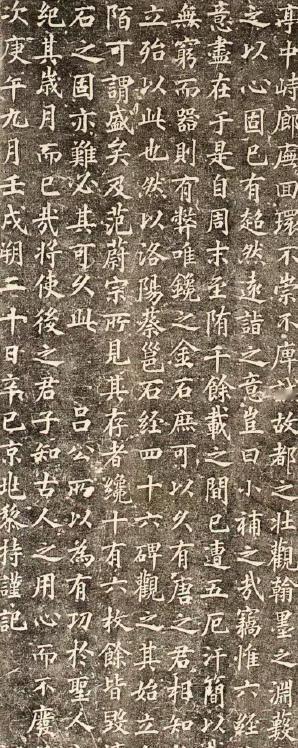 亭中峙廊廡回環不崇不庳故都之壯觀翰墨之淵藪
之以心固已有超然遠詣之意豈曰小補之哉竊惟六經
意盡在于是自周末至隋千餘載之間已遭五厄汗簡以
無窮而器則有弊唯鑱之金石庶可以久有唐之君相知
立殆以此也然以洛陽蔡邕石経四十六碑觀之其始立
陌可謂盛矣及范蔚宗所見其存者纔十有六枚餘皆毀
石之固亦難必其可久此 呂公所以為有功於聖人
紀其歲月而已哉將使後之君子知古人之用心而不廢
次庚午九月壬戌朔二十日辛巳京兆黎持謹記